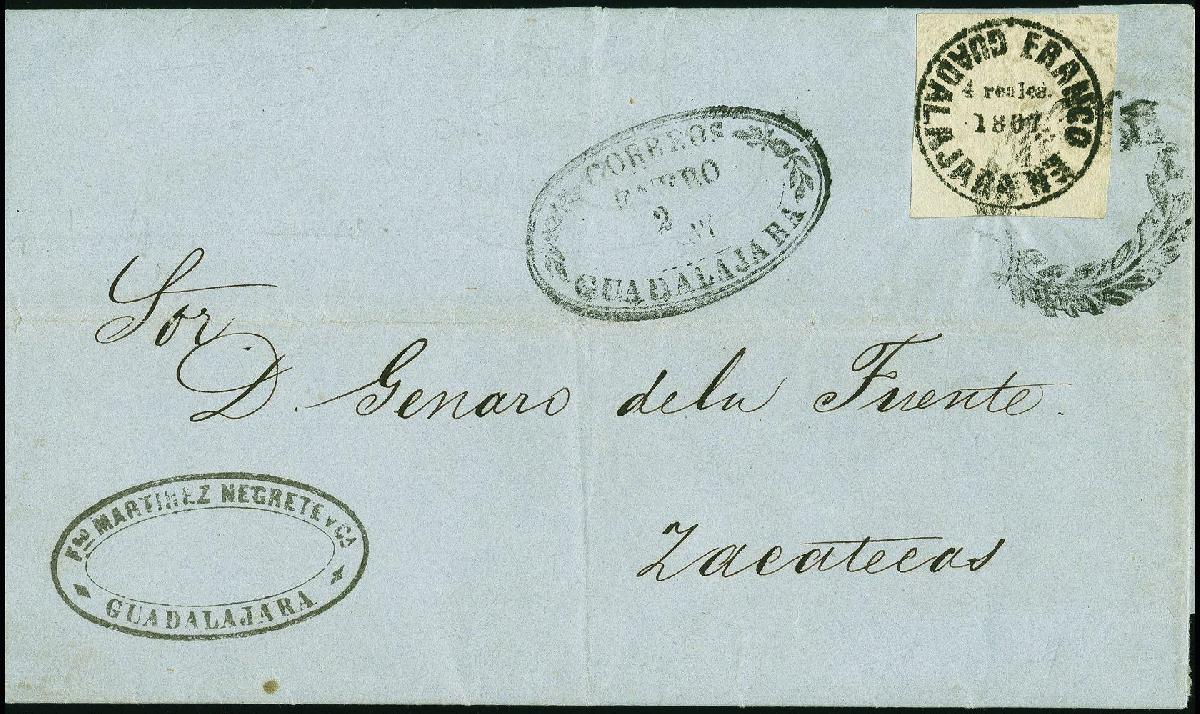 FRANCO EN GUADALAJARA
4 reales.
1867
CORREOS
2
GUADALAJARA
Sor.
D. Genaro dela Fuente.
Zacatecas
Fco MARTINEZ NEGRETE Y CA
GUADALAJARA